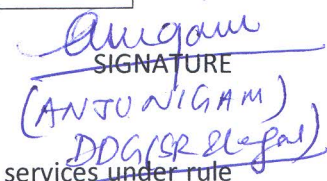 Anigam
SIGNATURE
(ANJU NIGAM)
DDG(SR & legal)
services under rule